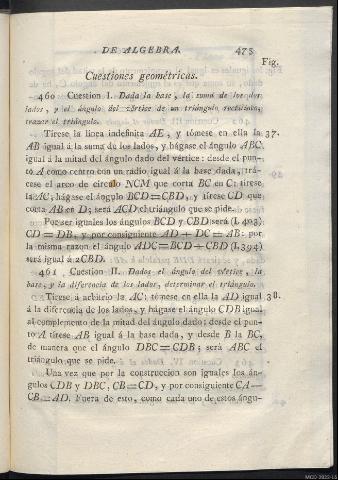 DE ALGEBRA. 475
Fig.
Cuestiones geométricas.
460 Cuestion I. Dada la base, la suma de los dos
lados, y el ángulo del vértice de un triángulo rectilineo,
trazar el triángulo.
Tírese la linea indefinita AE, y tómese en ella la 37.
AB igual á la suma de los lados, y hágase el ángulo ABC
igual á la mitad del ángulo dado del vértice: desde el pun-
to A como centro con un radio igual á la base dada, trá-
cese el arco de circulo NCM que corta BC en C: tírese
la AC; hágase el ángulo BCD=CBD, y tírese CD que
corta AB en D; será ACD el triángulo que se pide.
Por ser iguales los ángulos BCD y CBD será (I. 403)
CD = DB, y por consiguiente AD + DC = AB: por
la misma razon el ángulo ADC=BCD+CBD (I. 394)
será igual á 2CBD.
461 Cuestion II. Dados el ángulo del vértice, la
base, y la diferencia de los lados, determinar el triángulo.
Tírese á arbitrio la AC; tómese en ella la AD igual 38.
á la diferencia de los lados, y hágase el ángulo CDB igual
al complemento de la mitad del ángulo dado: desde el pun-
to A tírese AB igual á la base dada, y desde B la BC,
de manera que el ángulo DBC=CDB; será ABC el
triángulo que se pide.
Una vez que por la construccion son iguales los án-
gulos CDB y DBC, CB=CD, y por consiguiente CA—
CB=AD. Fuera de esto, como cada uno de estos ángu-
MCD 2022-L5